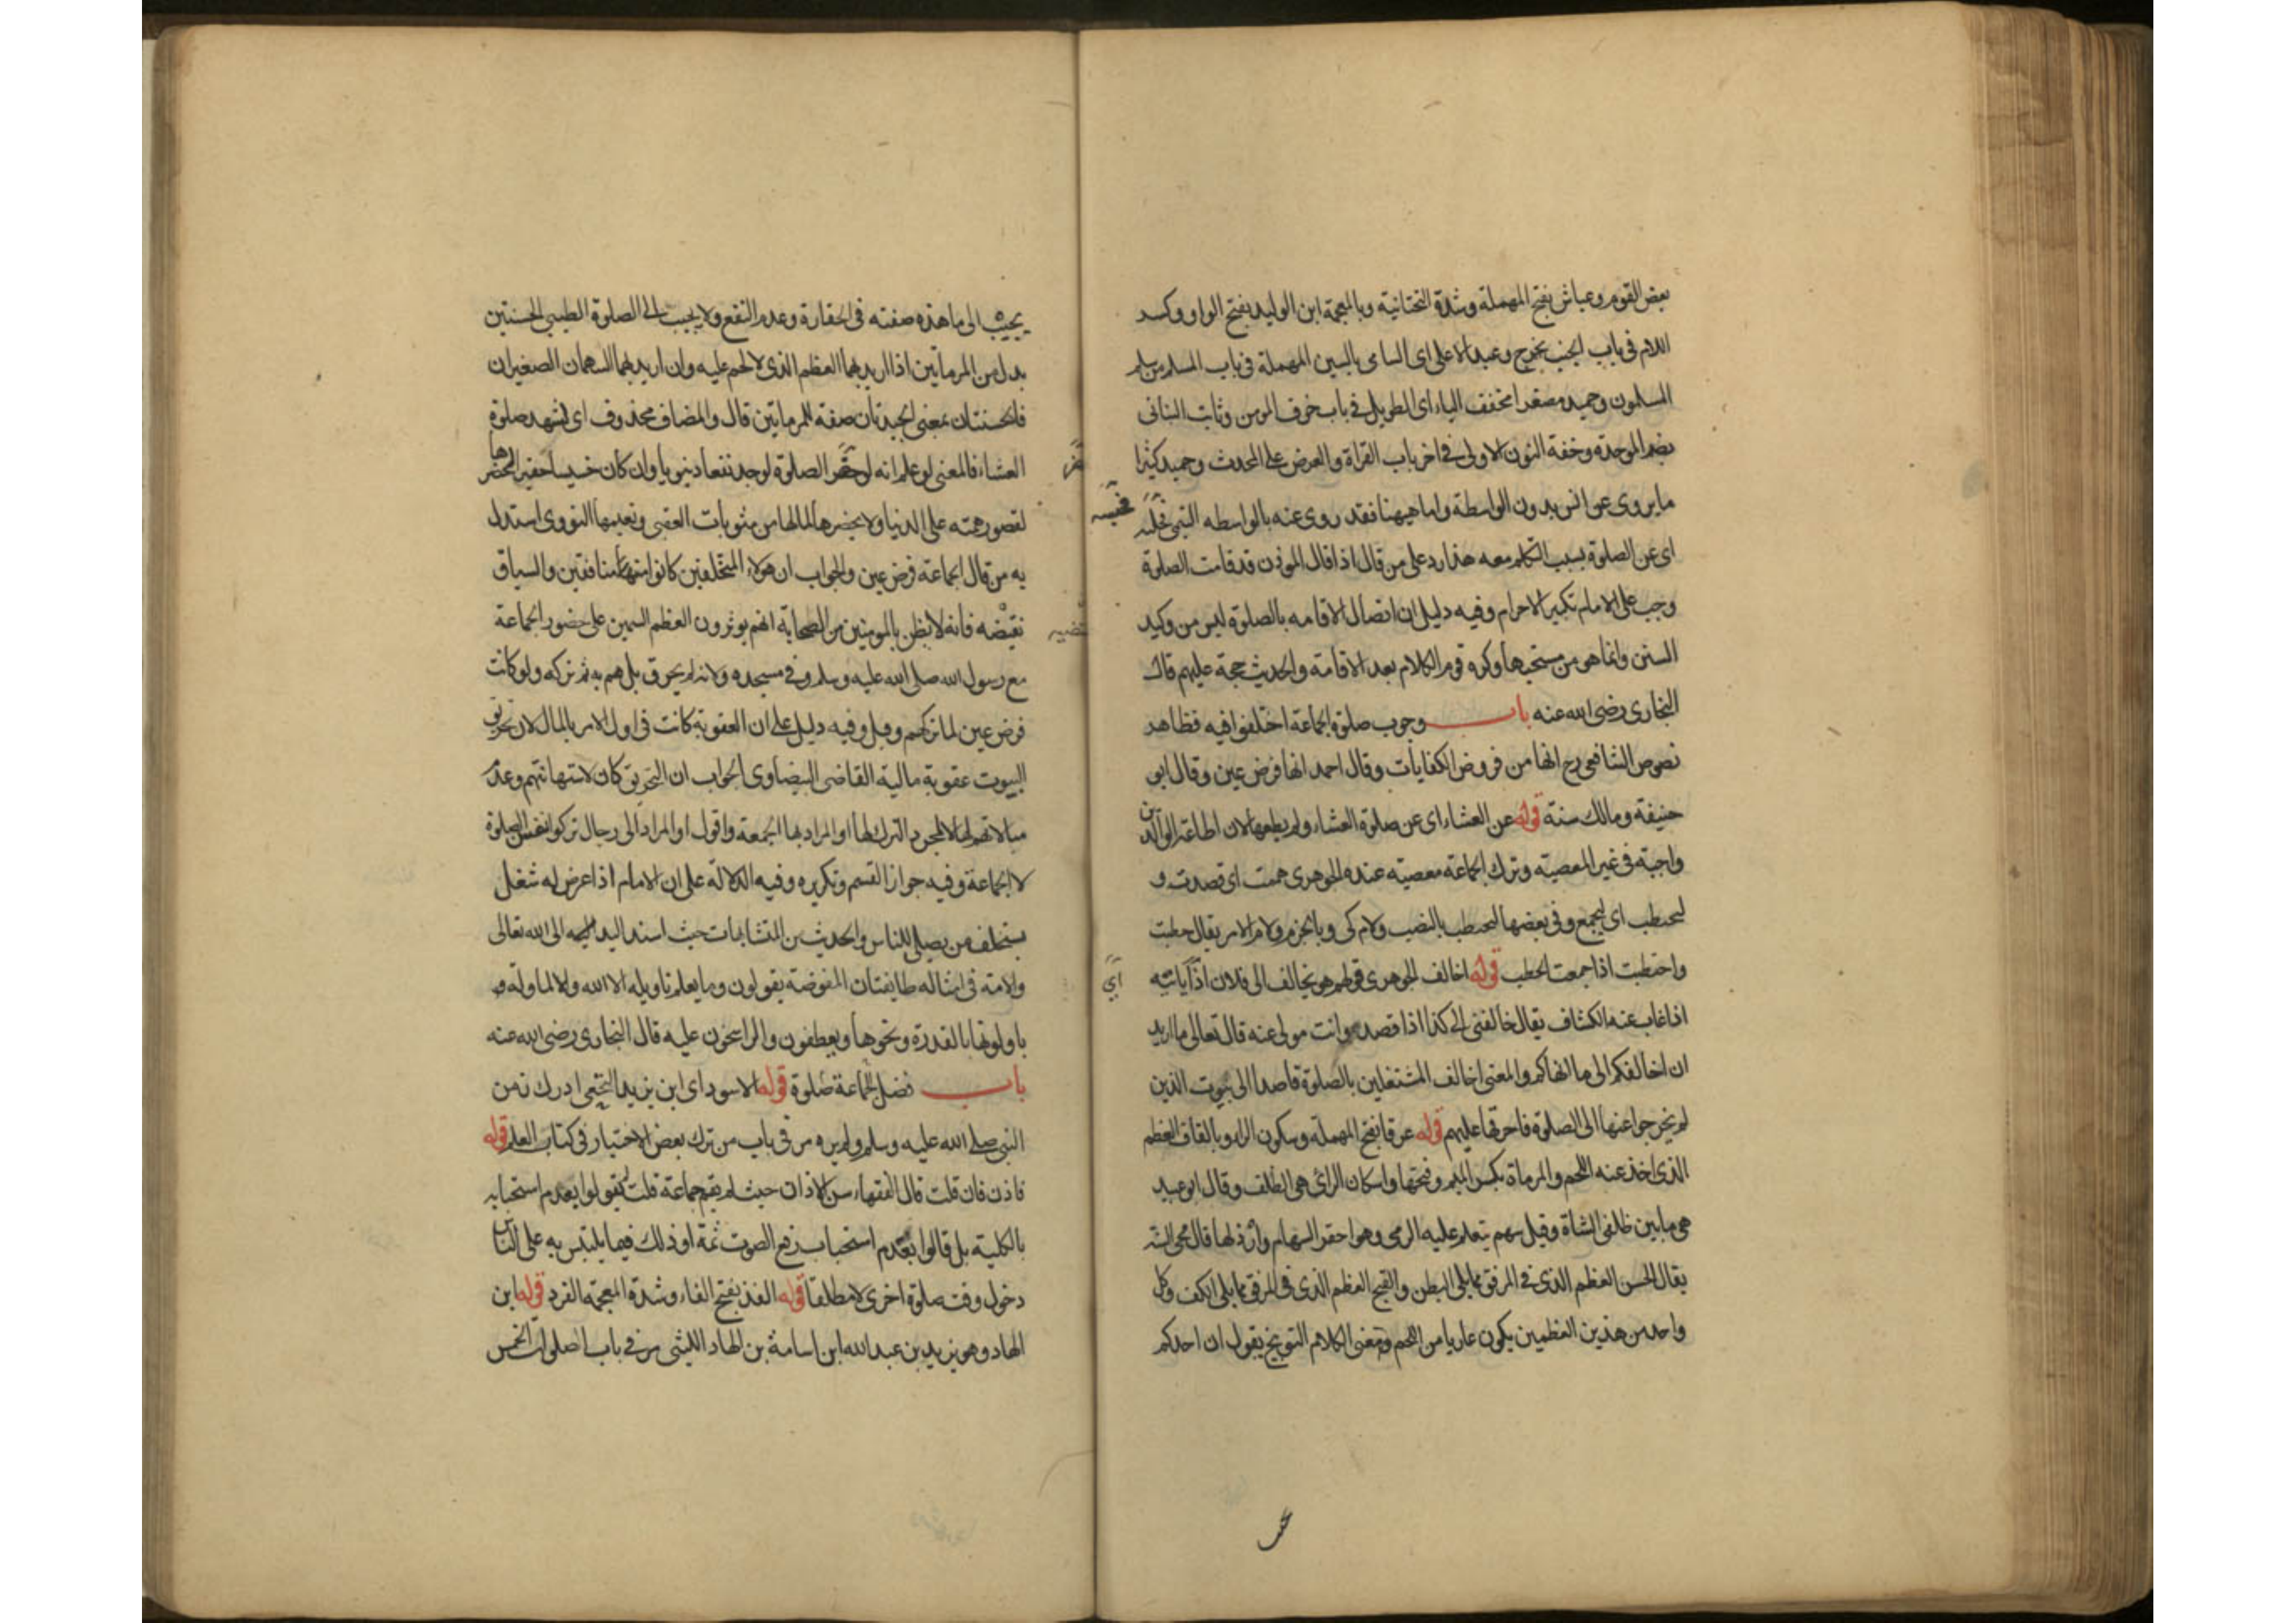 بعض القوم وعياش بفتح المهملة وشدة التحتانية وبالمعجمة ابن الوليد بفتح الواو وكسر
اللام في باب الجنب يخرج وعبد الاعلى اى السامى بالسين المهملة في باب المسلم من سلم
المسلمون وحميد مصغرا مخفف الياء اى الطويل في باب خوف المومن وثابت البنانى
بضم الموحدة وخفة النون الاولى في اخر باب القراة والعرض على المحدث وحميد كثيرا
ما يروى عن انس بدون الواسطة واما هيهنا فقد روى عنه بالواسطه التبى
اى عن الصلوة بسبب التكلم معه هذا رد على من قال اذا قال الموذن قد قامت الصلوة
وجب على الامام تكبير الاحرام وفيه دليل ان اتصال الاقامه بالصلوة ليس من وكيد
السنن وانما هو من مستحبها وكره قوم الكلام بعد الاقامة والحديث حجة عليهم قال
البخارى رضى الله عنه باب وجوب صلوة الجماعة اختلفوا فيه فظاهر
نصوص الشافعى رح انها من فروض الكفايات وقال احمد انها فرض عين وقال ابى
حنيفة ومالك سنة قوله عن العشاء اى عن صلوة العشاء ولم يطعها لان اطاعة الوالدين
واجبة في غير المعصية وترك الجماعة معصية عنده الجوهرى هممت اى قصدت و
ليحطب اى ليجمع وفى بعضها ليحتطب بالنصب ولام كى وبالجزم ولام الامر يقال حطبت
واحتطبت اذا جمعت الحطب قوله اخالف الجوهرى قولهم هو يخالف الى فلان اذا ياتيه
اذا غاب عنه الكشاف يقال خالفنى الى كذا اذا قصده وانت مولى عنه قال تعالى ما اريد
ان اخالفكم الى ما انهاكم والمعنى اخالف المشتغلين بالصلوة قاصدا الى بيوت الذين
لم يخرجوا عنها الى الصلوة فاحرقها عليهم قوله عرقا بفتح المهملة وسكون الراء وبالقاف العظم
الذى اخذ عنه اللحم والمرماة بكسر الميم وفتحها واسكان الرائ هى الظلف وقال ابو عبيد
هى ما بين ظلفى الشاة وقيل سهم يتعلم عليه الرمى وهو احقر السهام وارذلها قال محى السنه
يقال الحسن العظم الذى في المرفق مما يلى البطن والقبيح العظم الذى في المرفق مما يلى الكتف وكل
واحد من هذين العظمين يكون عاريا من اللحم ومعنى الكلام التوبيخ يقول ان احدكم
اتى
يجيب الى ما هذه صفته فى الحقارة وعدم النفع ولا يجيب الى الصلوة الطيبى الحسنتين
بدل من المرماتين اذا اريد بهما العظم الذى لا لحم عليه وان اريد بهما السهمان الصغيران
فالحسنتان بمعنى الجيدتان صفة للمرماتين قال والمضاف محذوف اى لشهد صلوة
العشاء فالمعنى لو علم انه لو حضر الصلوة لوجد نفعا دنيويا وان كان خسيسا حقيرا لحضرها
لقصور همته على الدنيا ولا يحضرها لما لها من مثوبات العقبى ونعيمها النووى استدل
به من قال الجماعة فرض عين والجواب ان هولاء المتخلفين كانوا منافقين والسياق
فانه لا يظن بالمومنين من الصحابة انهم يوثرون العظم السمين على حضور الجماعة
مع رسول الله صلى الله عليه وسلم وفى مسجده ولانه لم يحرق بل هم به ثم تركه ولو كانت
فرض عين لما تركهم وقيل وفيه دليل على ان العقوبة كانت فى اول الامر بالمال لان تحريق
البيوت عقوبة مالية القاضى البيضاوى الجواب ان التحريق كان لاستهانتهم وعدم
مبالاتهم لها لا لمجرد الترك لها او المراد بها الجمعة واقول او المراد الى رجال تركوا نفس الصلوة
لا الجماعة وفيه جواز القسم وتكريره وفيه الدلالة على ان الامام اذا عرض له شغل
يستخلف من يصلى بالناس والحديث من المتشابهات حيث اسند اليد فيه الى الله تعالى
والامة فى امثاله طايفتان المفوضة يقولون وما يعلم تاويله الا الله والا الماولة و
ياولونها بالقدرة ونحوها ويعطفون والراسخون عليه قال البخارى رضى الله عنه
باب فضل الجماعة صلوة قوله الاسود اى ابن يزيد النخعى ادرك زمن
النبى صلى الله عليه وسلم ولم يره مر فى باب من ترك بعض الاختيار فى كتاب العلم قوله
فاذن فان قلت قال الفقهاء سن الاذان حيث لم يقم جماعة قلت لم يقولوا بعدم استحبابه
بالكلية بل قالوا بعدم استحباب رفع الصوت ثمة او ذلك فيما يلتبس به على الناس
دخول وقت صلوة اخرى لا مطلقا قوله الفذ بفتح الفاء وشدة المعجمة الفرد قوله ابن
الهاد وهو يزيد بن عبد الله ابن اسامة بن الهاد الليثى مر فى باب الصلوات الخمس